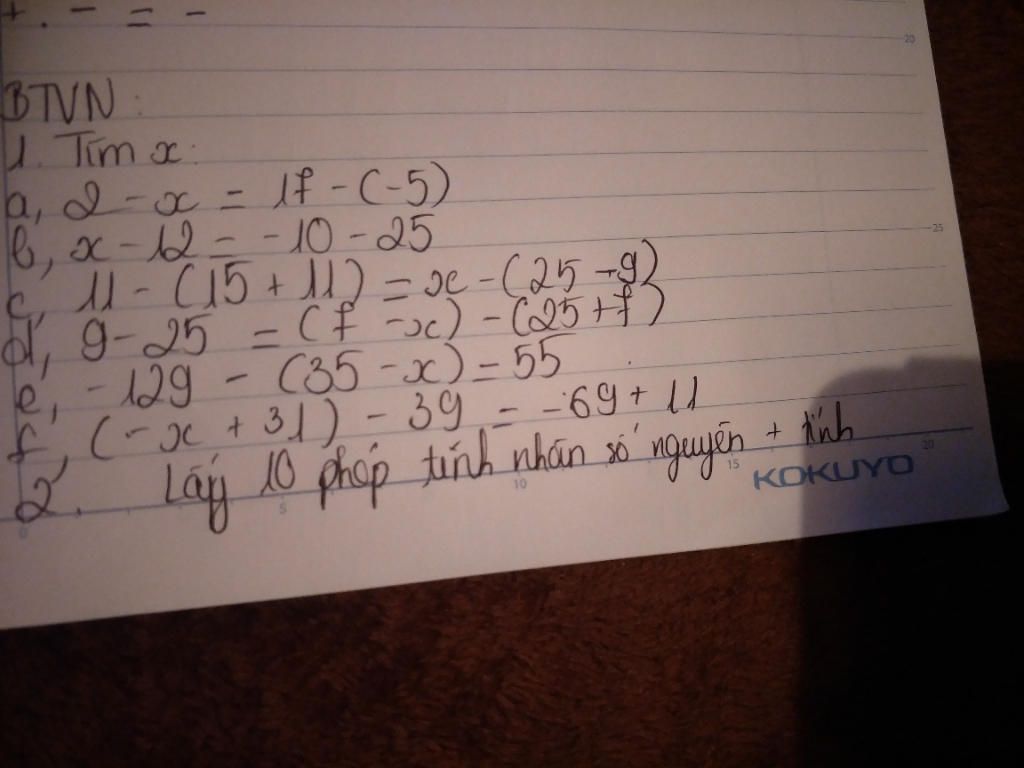 + . - = -
BTVN:
1. Tìm x:
a, 2 - x = 17 - (-5)
b, x - 12 = -10 - 25
c, 11 - (15 + 11) = x - (25 - 9)
d, 9 - 25 = (7 - x) - (25 + 7)
e, -129 - (35 - x) = 55
f, (-x + 31) - 39 = -69 + 11
2. Lấy 10 phép tính nhân số nguyên + tính
KOKUYO
0 5 10 15 20
20
25